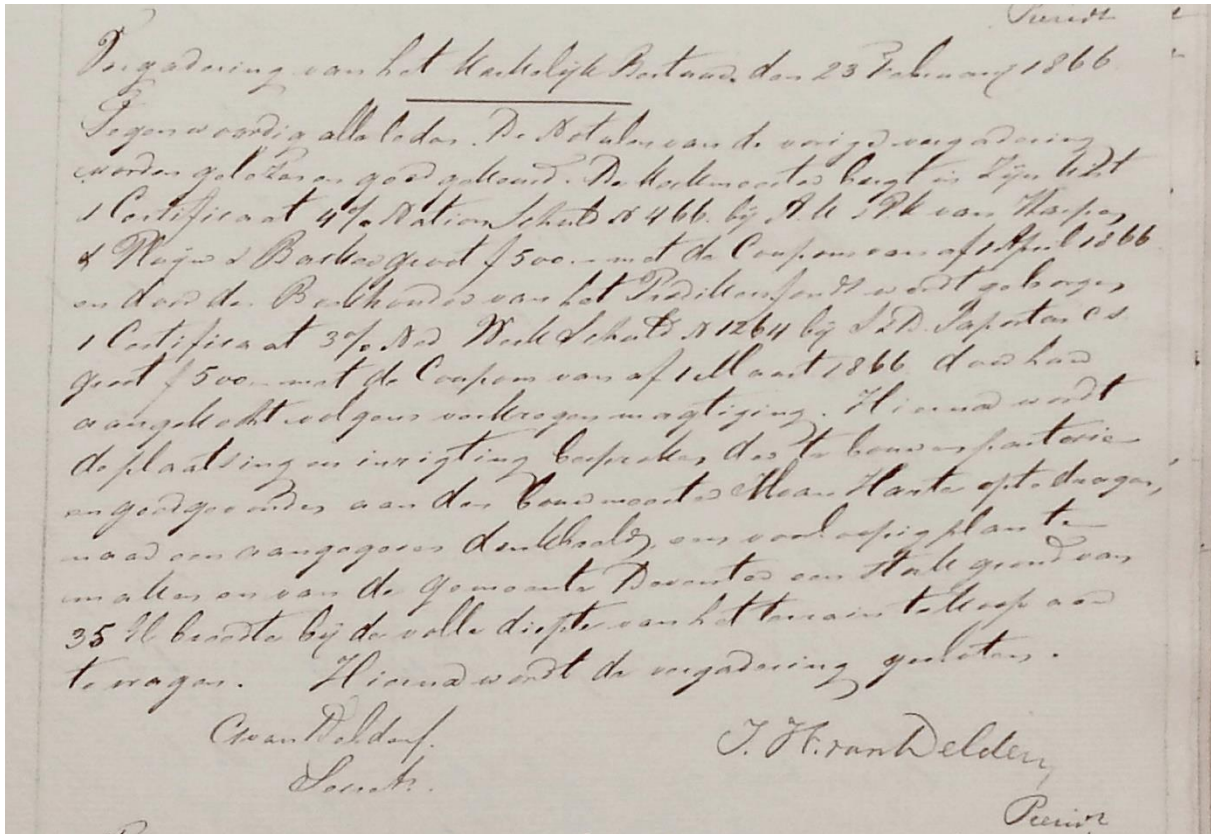 Presidt
Vergadering van het Kerkelijk Bestuur den 23 February 1866
Tegenwoordig alle leden. De Notulen van de vorige vergadering
worden gelezen en goedgekeurd. De Kerkmeester bergt in Zijn Kist
1 Certificaat 4% Nation Schuld N 466. bij A. & van Harpen
& Bosken groot f 500.- met de Coupons van af 1 April 1866
en door den Boekhouder van het Predikensfonds wordt geborgen
1 Certificaat 3% Ned Werk Schuld N 1264 bij I & D. Saportas Cs
groot f 500.- met de Coupons van af 1 Maart 1866, door hen
aangekocht volgens verkregen magtiging. Hierna wordt
de plaatsing en inrigting besproken, der te bouwen pastorie
en goedgevonden aan den bouwmeester Mean Harte op te dragen,
naar een aangegeven denkbeeld, een voorloopig plan te
maken en van de gemeente Deventer een stuk grond van
35 El breedte bij de volle diepte van het terrain te koop aan
te vragen. Hierna wordt de vergadering gesloten.
G van Delden J. H. van Delden
Secret. Presidt